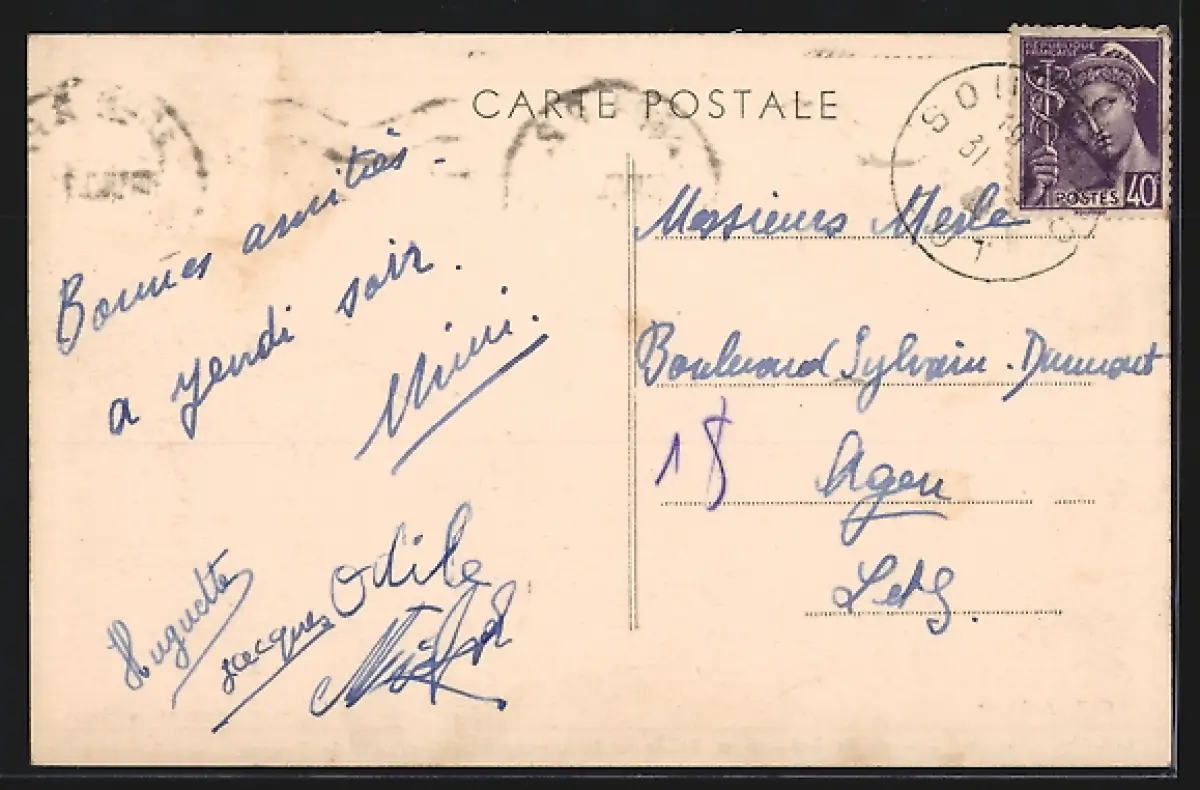 CARTE POSTALE
RÉPUBLIQUE
FRANÇAISE
POSTES 40c
SOUI
19
31
LOT
Bonnes amitiés.
a jendi soir.
Mimi.
Huguette
Jacques
Odile
Messieurs Merle
Boulevard Sylvain. Dumont
18
Agen
L et G.